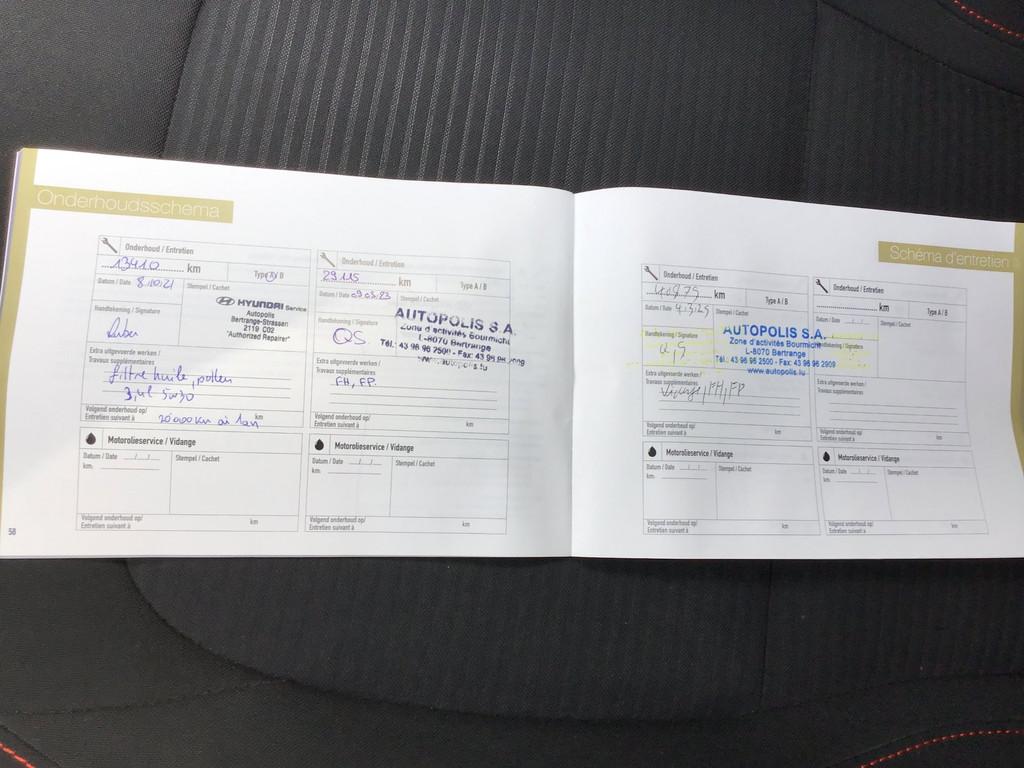 Onderhoudsschema
Onderhoud / Entretien
13410 km
Type A / B
Datum / Date 8.10.21
Stempel / Cachet
HYUNDAI Service
Autopolis
Bertrange-Strassen
2119 C02
"Authorized Repairer"
Handtekening / Signature
Extra uitgevoerde werken /
Travaux supplémentaires
filtre huile, pollen
5w30
Volgend onderhoud op/
Entretien suivant à 20 000 km où 1 an km
Motorolieservice / Vidange
Datum / Date _/_/_
km:
Stempel / Cachet
Volgend onderhoud op/
Entretien suivant à km
Onderhoud / Entretien
29115 km
Type A / B
Datum / Date 09.03.23
Stempel / Cachet
AUTOPOLIS S.A.
Zone d'activités Bourmicht
L-8070 Bertrange
Tél.: 43 96 96 2500 - Fax: 43 96 96
www.autopolis.lu
Handtekening / Signature
QS
Extra uitgevoerde werken /
Travaux supplémentaires
FH, FP.
Volgend onderhoud op/
Entretien suivant à km
Motorolieservice / Vidange
Datum / Date _/_/_
km:
Stempel / Cachet
Volgend onderhoud op/
Entretien suivant à km
58
Schéma d'entretien
Onderhoud / Entretien
km
Type A / B
Datum / Date 4.3.25
Stempel / Cachet
AUTOPOLIS S.A.
Zone d'activités Bourmicht
L-8070 Bertrange
Tél: 43 96 96 2500 - Fax: 43 96 96 2909
www.autopolis.lu
Handtekening / Signature
QS
Extra uitgevoerde werken /
Travaux supplémentaires
Vidange, FH, FP
Volgend onderhoud op/
Entretien suivant à km
Motorolieservice / Vidange
Datum / Date _/_/_
km:
Stempel / Cachet
Volgend onderhoud op/
Entretien suivant à km
Onderhoud / Entretien
km
Type A / B
Datum / Date _/_/_
Stempel / Cachet
Handtekening / Signature
Extra uitgevoerde werken /
Travaux supplémentaires
Volgend onderhoud op/
Entretien suivant à km
Motorolieservice / Vidange
Datum / Date _/_/_
km:
Stempel / Cachet
Volgend onderhoud op/
Entretien suivant à km